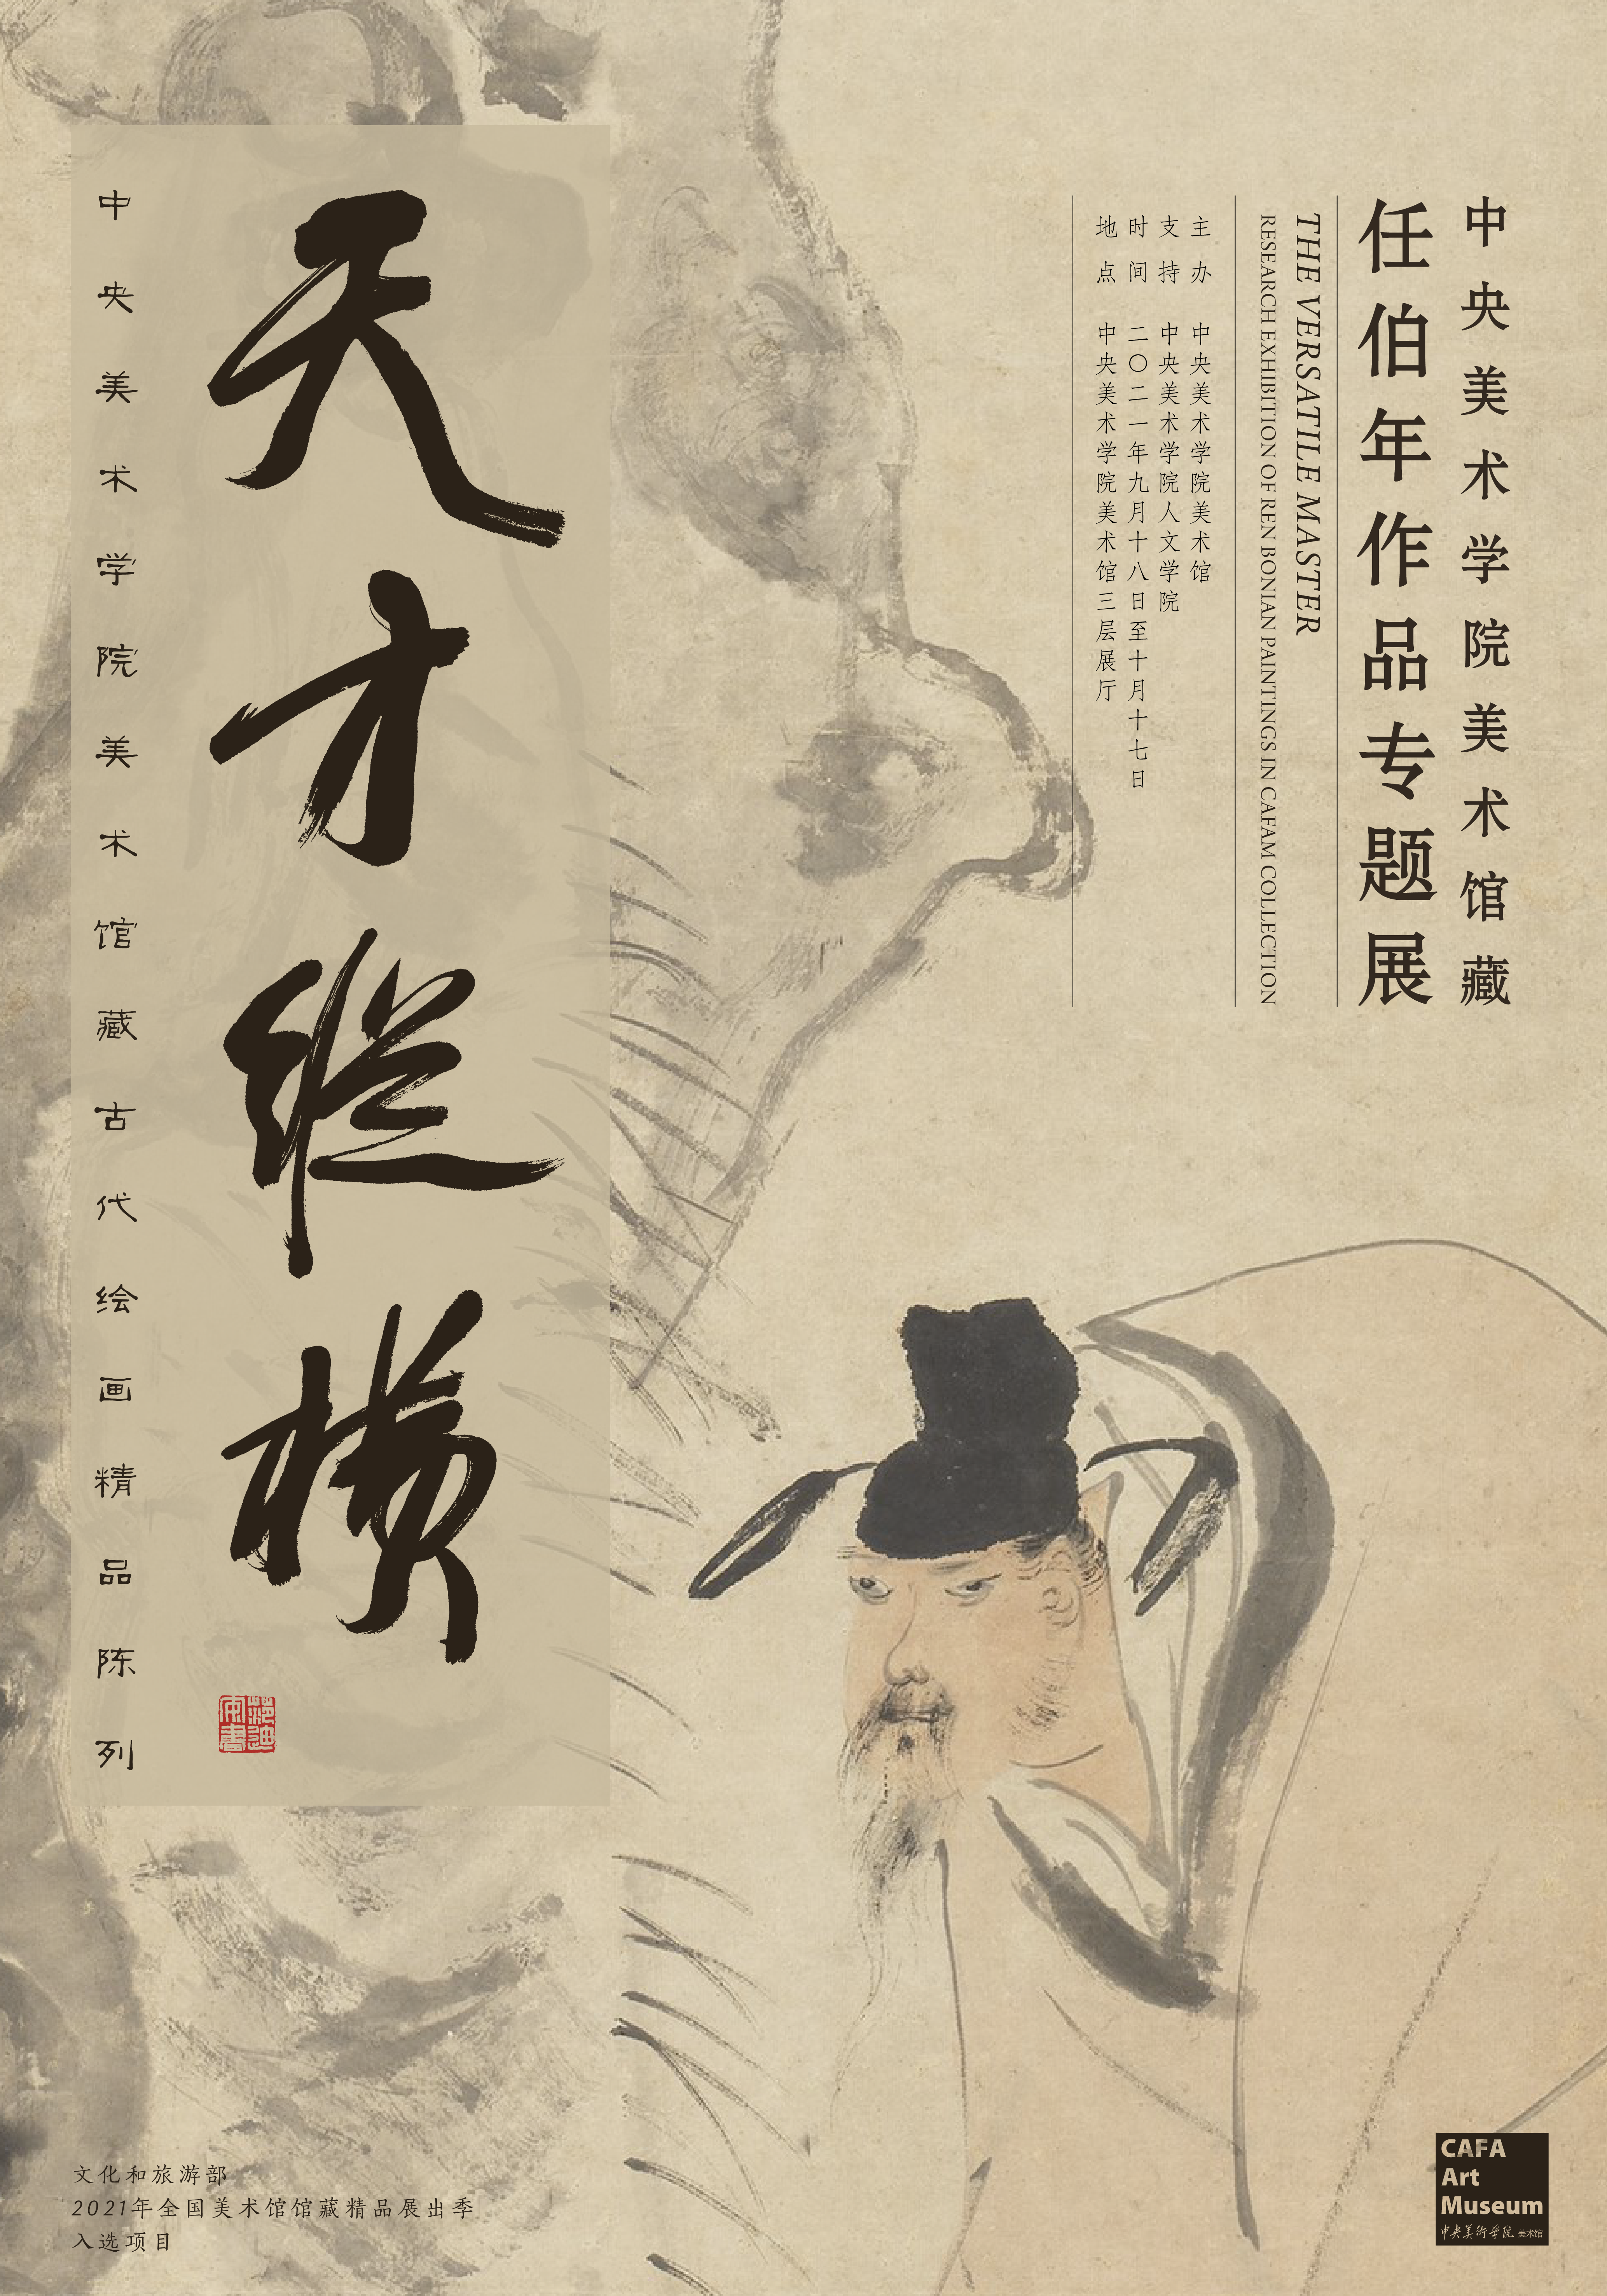 中央美术学院美术馆藏
任伯年作品专题展
THE VERSATILE MASTER
RESEARCH EXHIBITION OF REN BONIAN PAINTINGS IN CAFAM COLLECTION
主办 中央美术学院美术馆
支持 中央美术学院人文学院
时间 二〇二一年九月十八日至十月十七日
地点 中央美术学院美术馆三层展厅
天才纵横
中央美术学院美术馆藏古代绘画精品陈列
文化和旅游部
2021年全国美术馆馆藏精品展出季
入选项目
CAFA
Art
Museum
中央美術學院 美术馆